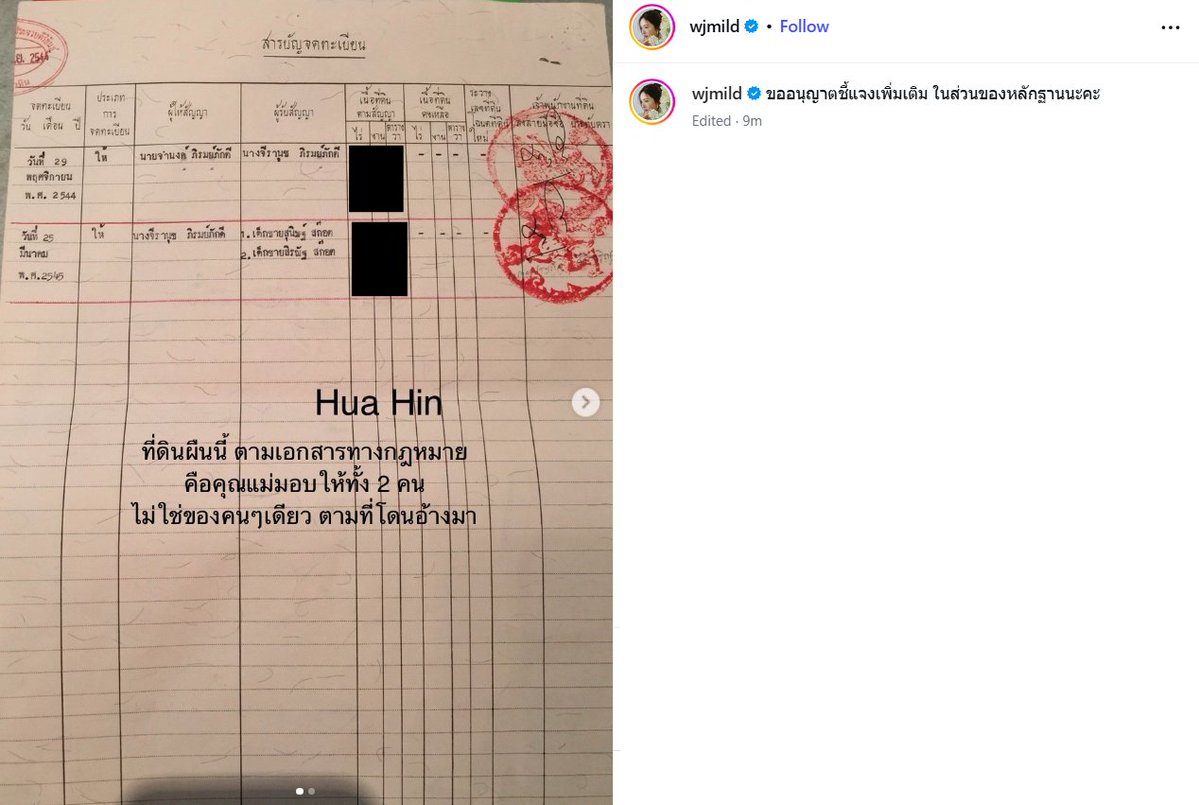 สารบัญจดทะเบียน
2544
จดทะเบียน
วัน เดือน ปี
ประเภท
การ
จดทะเบียน
ผู้ให้สัญญา
ผู้รับสัญญา
เนื้อที่ดิน
ตามสัญญา
ไร่ งาน ตาราง
วา
เนื้อที่ดิน
คงเหลือ
ไร่ งาน ตาราง
วา
ระวาง
เลขที่ดิน
โฉนดที่ดิน
ใหม่
เจ้าพนักงานที่ดิน
ลงลายมือชื่อ ประทับตรา
วันที่ 29 ให้ นายจำนงค์ ภิรมย์ภักดี นางจีรานุช ภิรมย์ภักดี - - - -
พฤศจิกายน
พ.ศ. 2544
วันที่ 25 ให้ นางจีรานุช ภิรมย์ภักดี 1.เด็กชายสุนิษฐ์ สก๊อต - - - -
มีนาคม 2.เด็กชายสิรณัฐ สก๊อต
พ.ศ.2545
Hua Hin
ที่ดินผืนนี้ ตามเอกสารทางกฎหมาย
คือคุณแม่มอบให้ทั้ง 2 คน
ไม่ใช่ของคนๆเดียว ตามที่โดนอ้างมา
wjmild • Follow
wjmild ขออนุญาตชี้แจงเพิ่มเติม ในส่วนของหลักฐานนะคะ
Edited · 9m